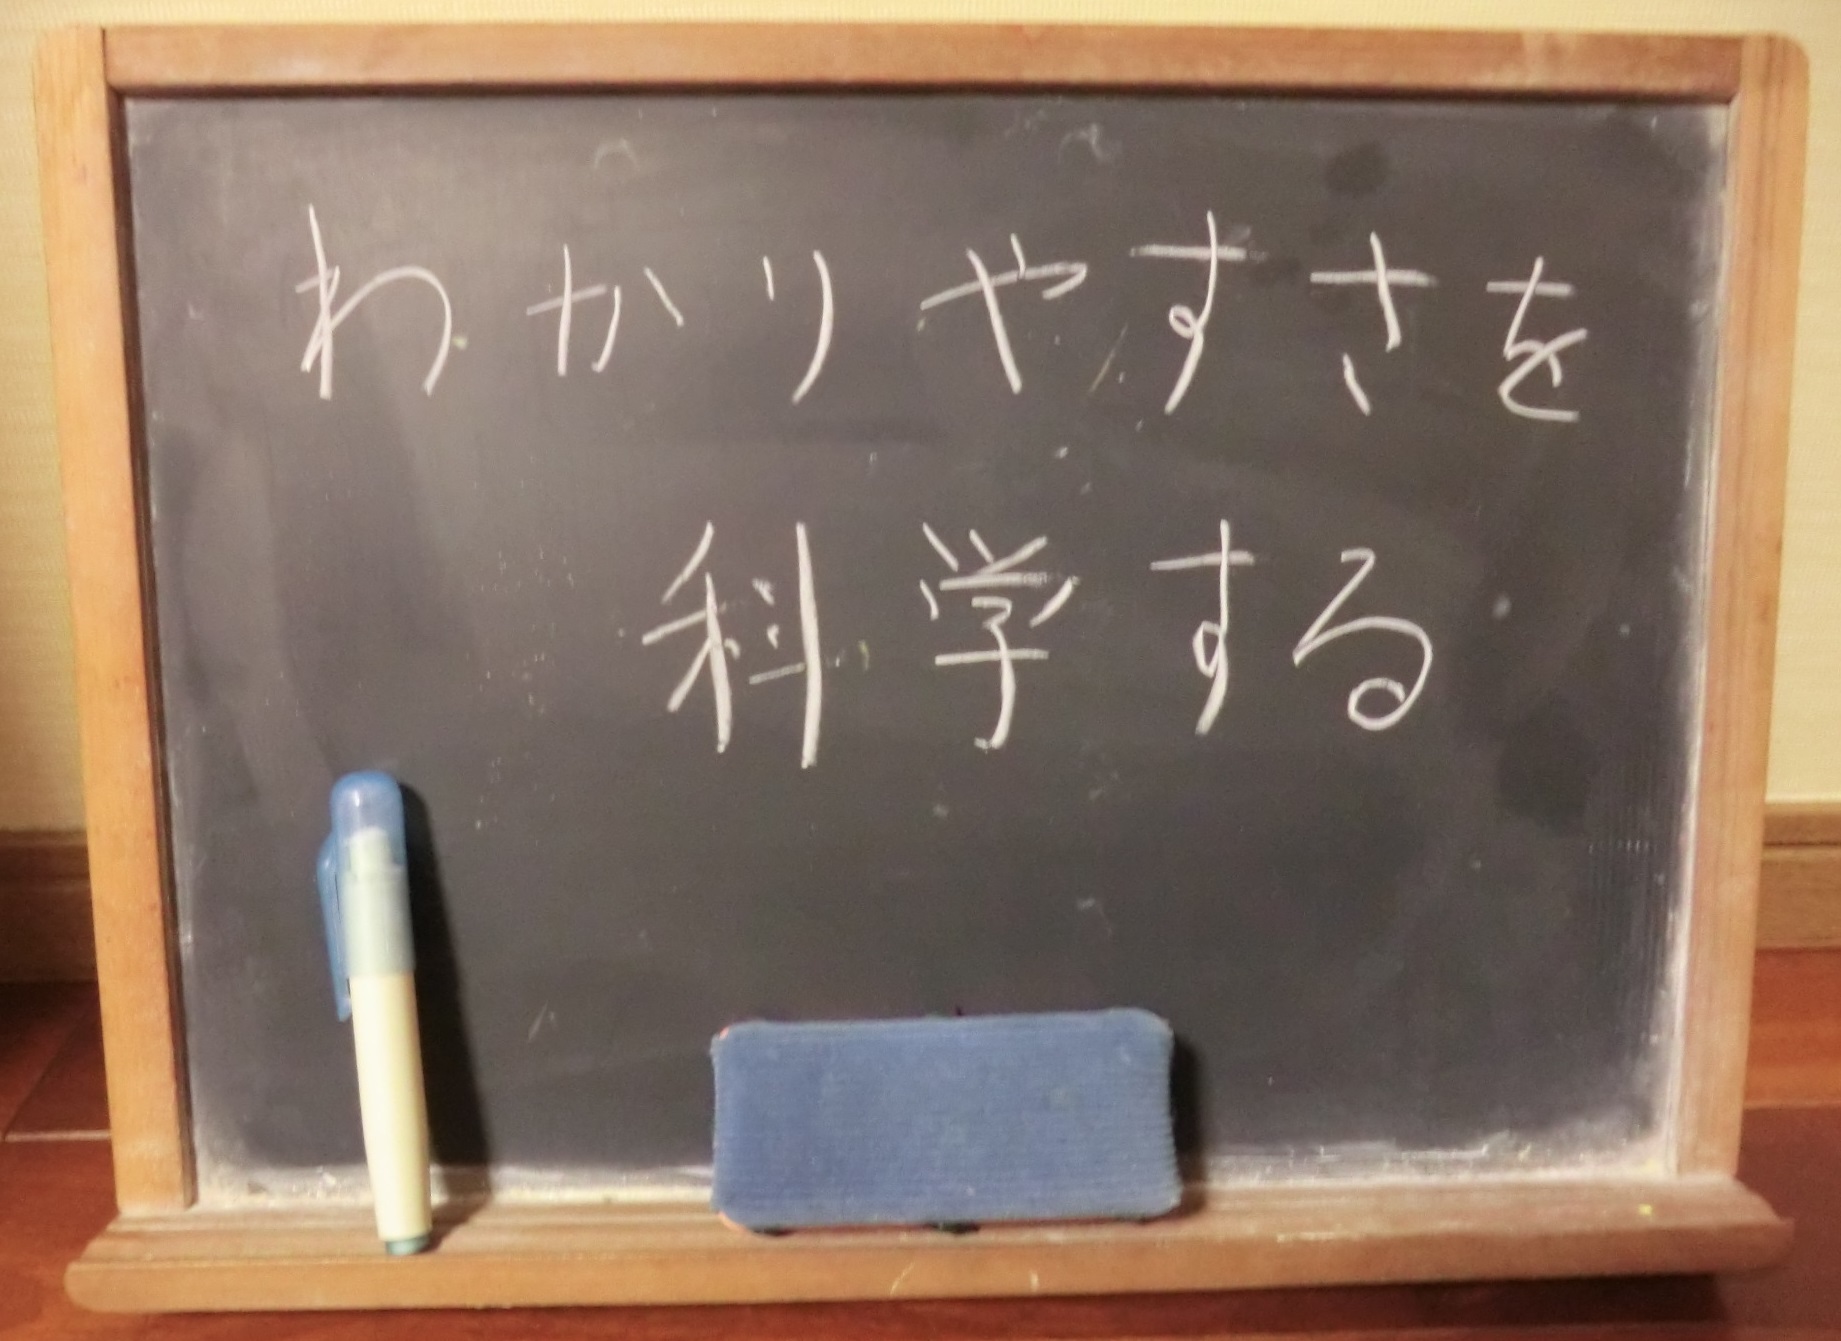 わかりやすさを
科学する